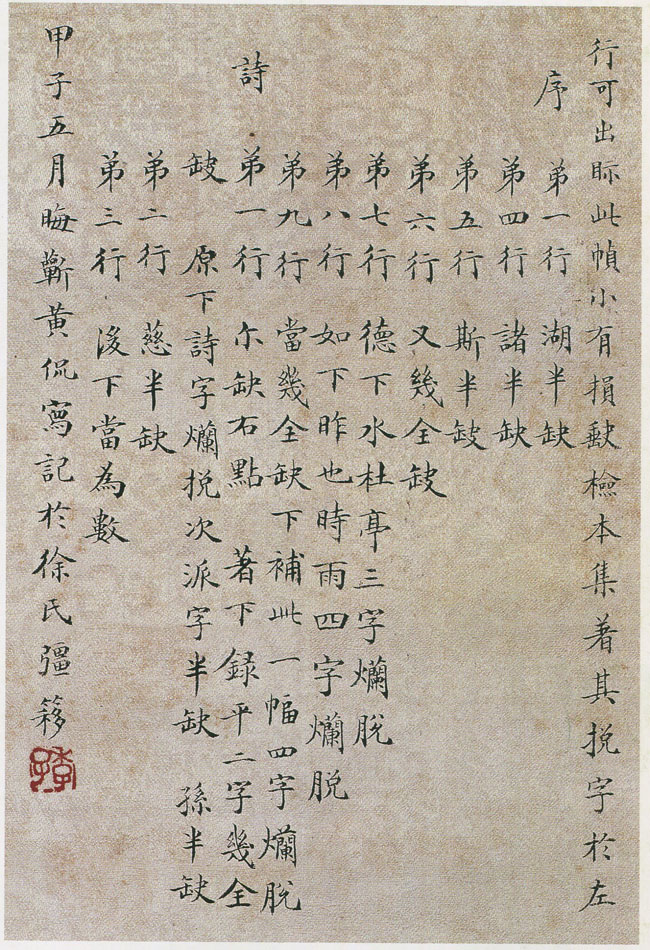 行可出眎此幀小有損缺檢本集著其挩字於左
序
第一行 湖半缺
第四行 諸半缺
第五行 斯半缺
第六行 又幾全缺
第七行 德下水杜亭三字爛脫
第八行 如下昨也時雨四字爛脫
第九行 當幾全缺下補此一幅四字爛脫
詩
第一行 尒缺右點 著下録平二字幾全
缺 原下詩字爛挩次派字半缺 孫半缺
第二行 慈半缺
第三行 後下當為數
甲子五月晦蘄黃侃寫記於徐氏彊簃